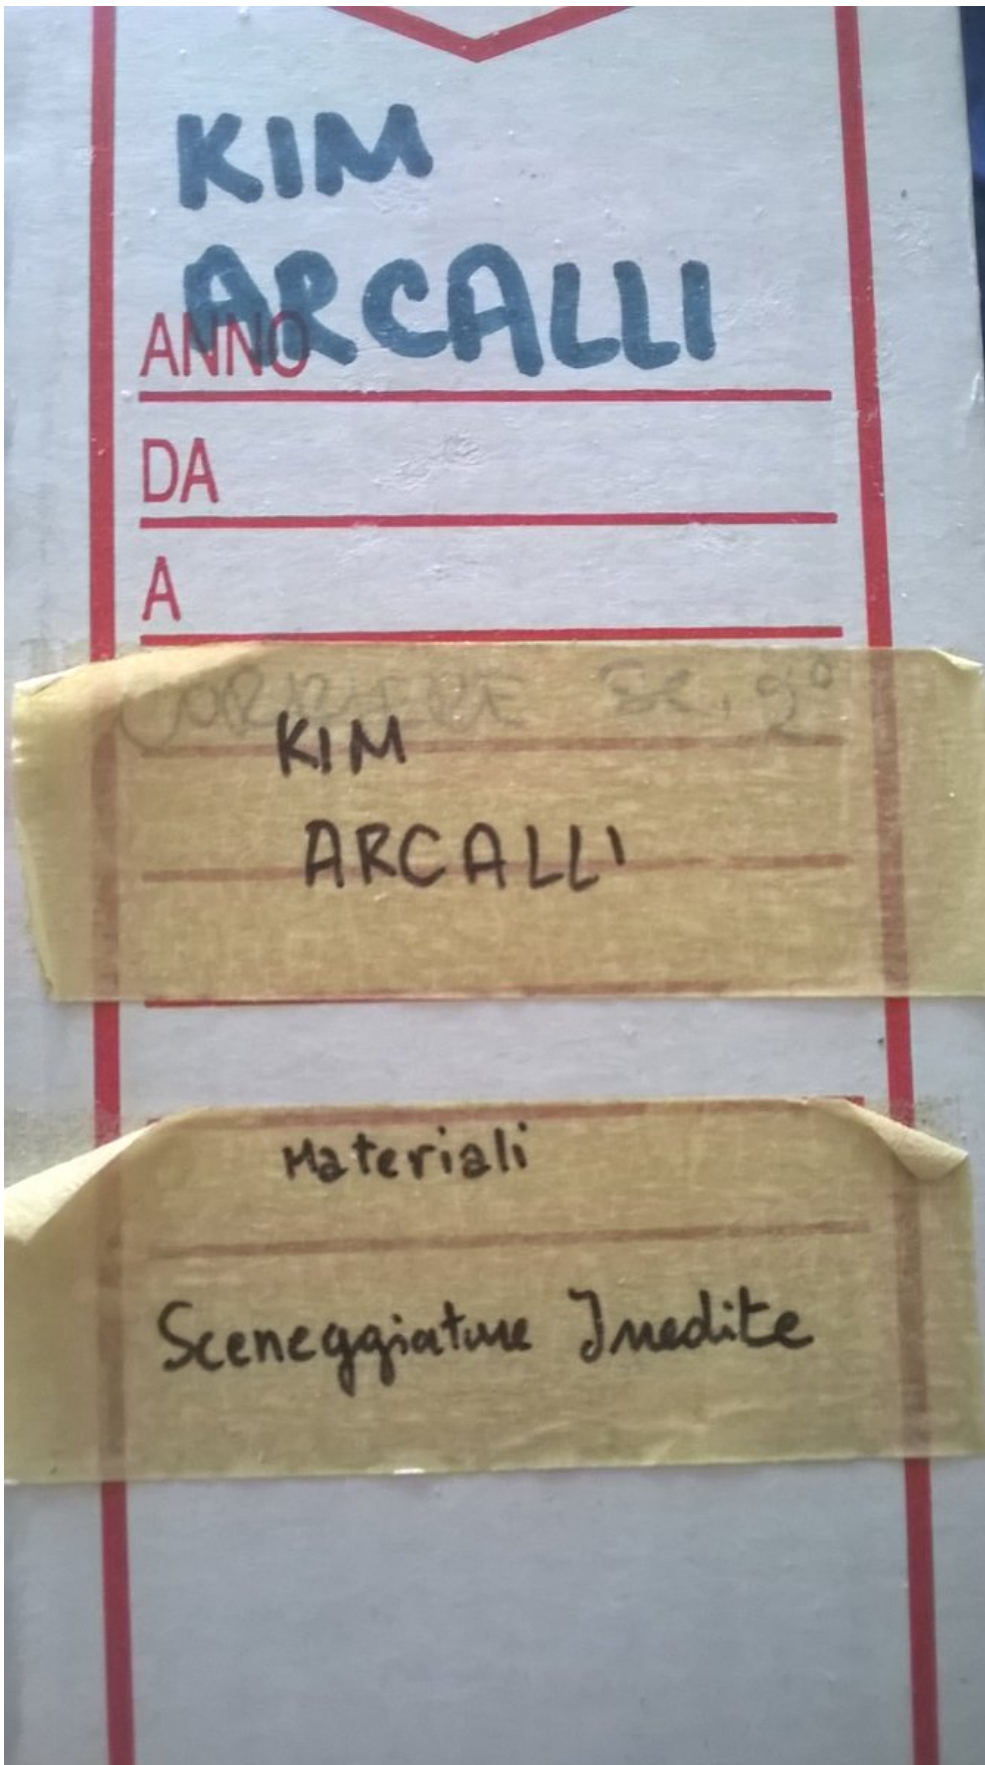 KIM
ARCALLI
ANNO
DA
A
KIM
ARCALLI
Materiali
Sceneggiature Inedite